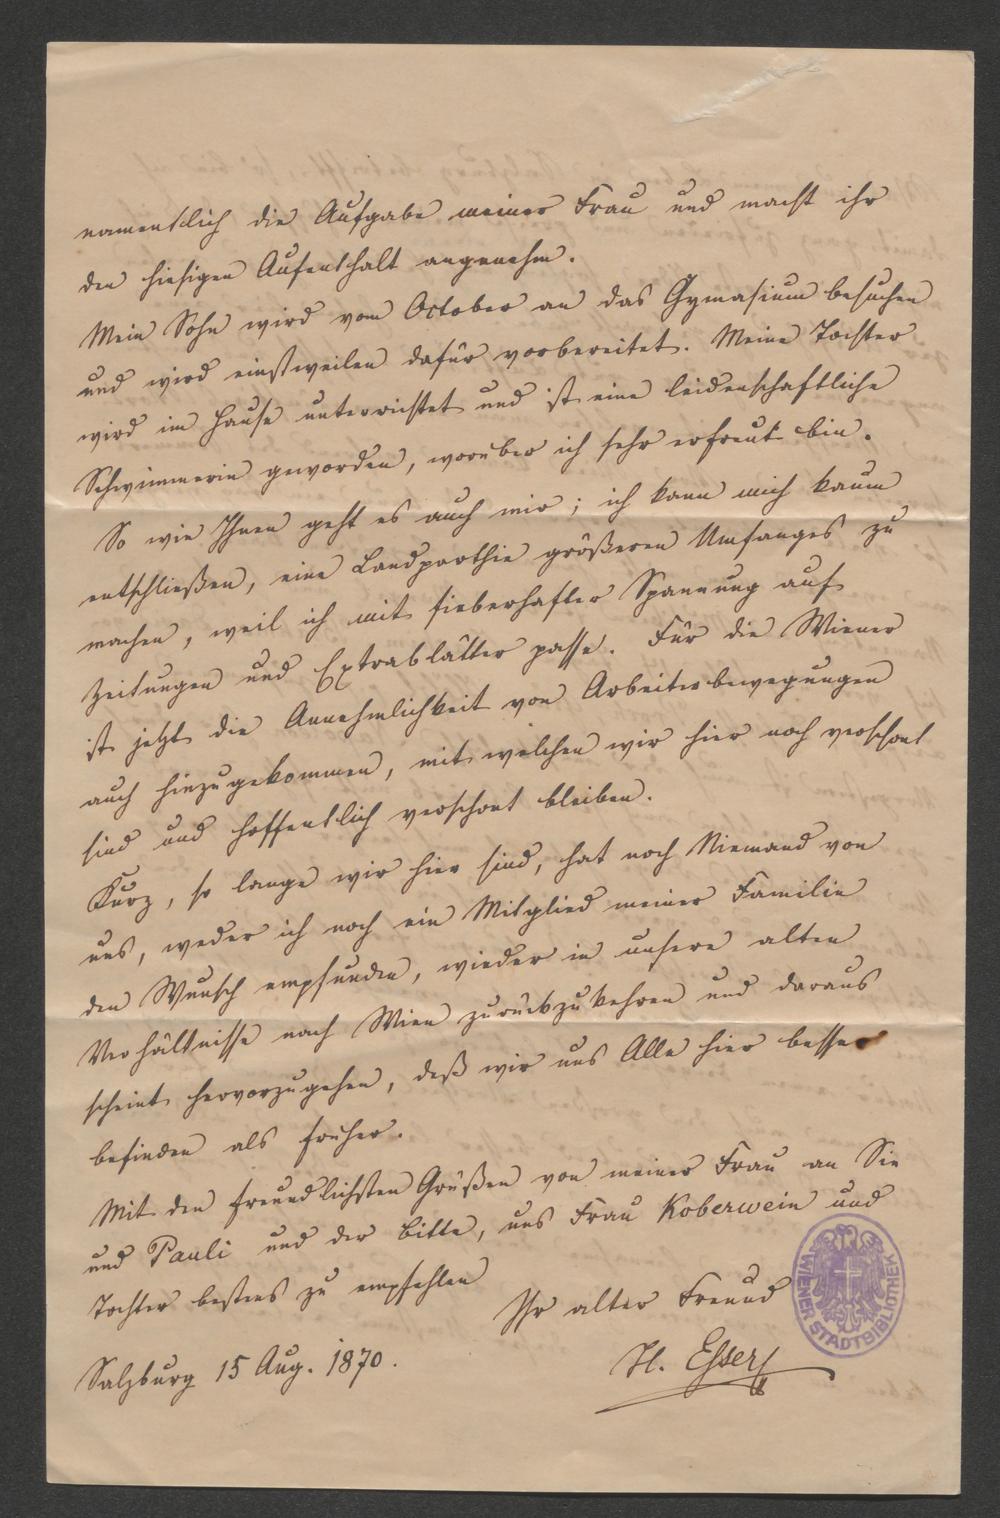 namentlich die Aufgabe meiner Frau und macht ihr
den hiesigen Aufenthalt angenehm.
Mein Sohn wird vom October an das Gymnasium besuchen
und wird einstweilen dafür vorbereitet. Meine Tochter
wird im Hause unterrichtet und ist eine leidenschaftliche
Schwimmerin geworden, worüber ich sehr erfreut bin.
So wie Ihnen geht es auch mir; ich kann mich kaum
entschließen, eine Landparthie größeren Umfanges zu
machen, weil ich mit fieberhafter Spannung auf
Zeitungen und Extrablätter passe. Für die Wiener
ist jetzt die Annehmlichkeit von Arbeiterbewegungen
auch hinzugekommen, mit welchen wir hier noch verschont
sind und hoffentlich verschont bleiben.
Kurz, so lange wir hier sind, hat noch Niemand von
uns, weder ich noch ein Mitglied meiner Familie
den Wunsch empfunden, wieder in unsere alten
Verhältnisse nach Wien zurückzukehren und daraus
scheint hervorzugehen, daß wir uns Alle hier besser
befinden als früher.
Mit den freundlichsten Grüßen von meiner Frau an Sie
und Pauli und der Bitte, uns Frau Koberwein und
Tochter bestens zu empfehlen
Ihr alter Freund
H. Esser
Salzburg 15 Aug. 1870.
WIENER STADTBIBLIOTHEK